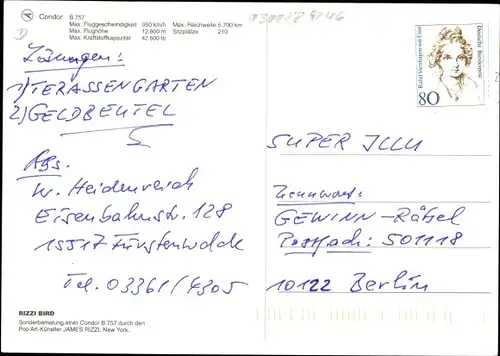 Condor
B 757
Max. Fluggeschwindigkeit 950 km/h
Max. Flughöhe 12.800 m
Max. Kraftstoffkapazität 42.600 lb
Max. Reichweite 5.700 km
Sitzplätze 210
Lösungen:
1) TERASSENGARTEN
2) GELDBEUTEL
Abs.
W. Heidenreich
Eisenbahnstr. 128
15517 Fürstenwalde
Tel. 03361/4305
RIZZI BIRD
Sonderbemalung einer Condor B 757 durch den
Pop Art-Künstler JAMES RIZZI, New York.
Rahel Varnhagen von Ense
Deutsche Bundespost
80
SUPER ILLU
Kennwort:
GEWINN-Rätsel
Postfach: 501118
10122 Berlin